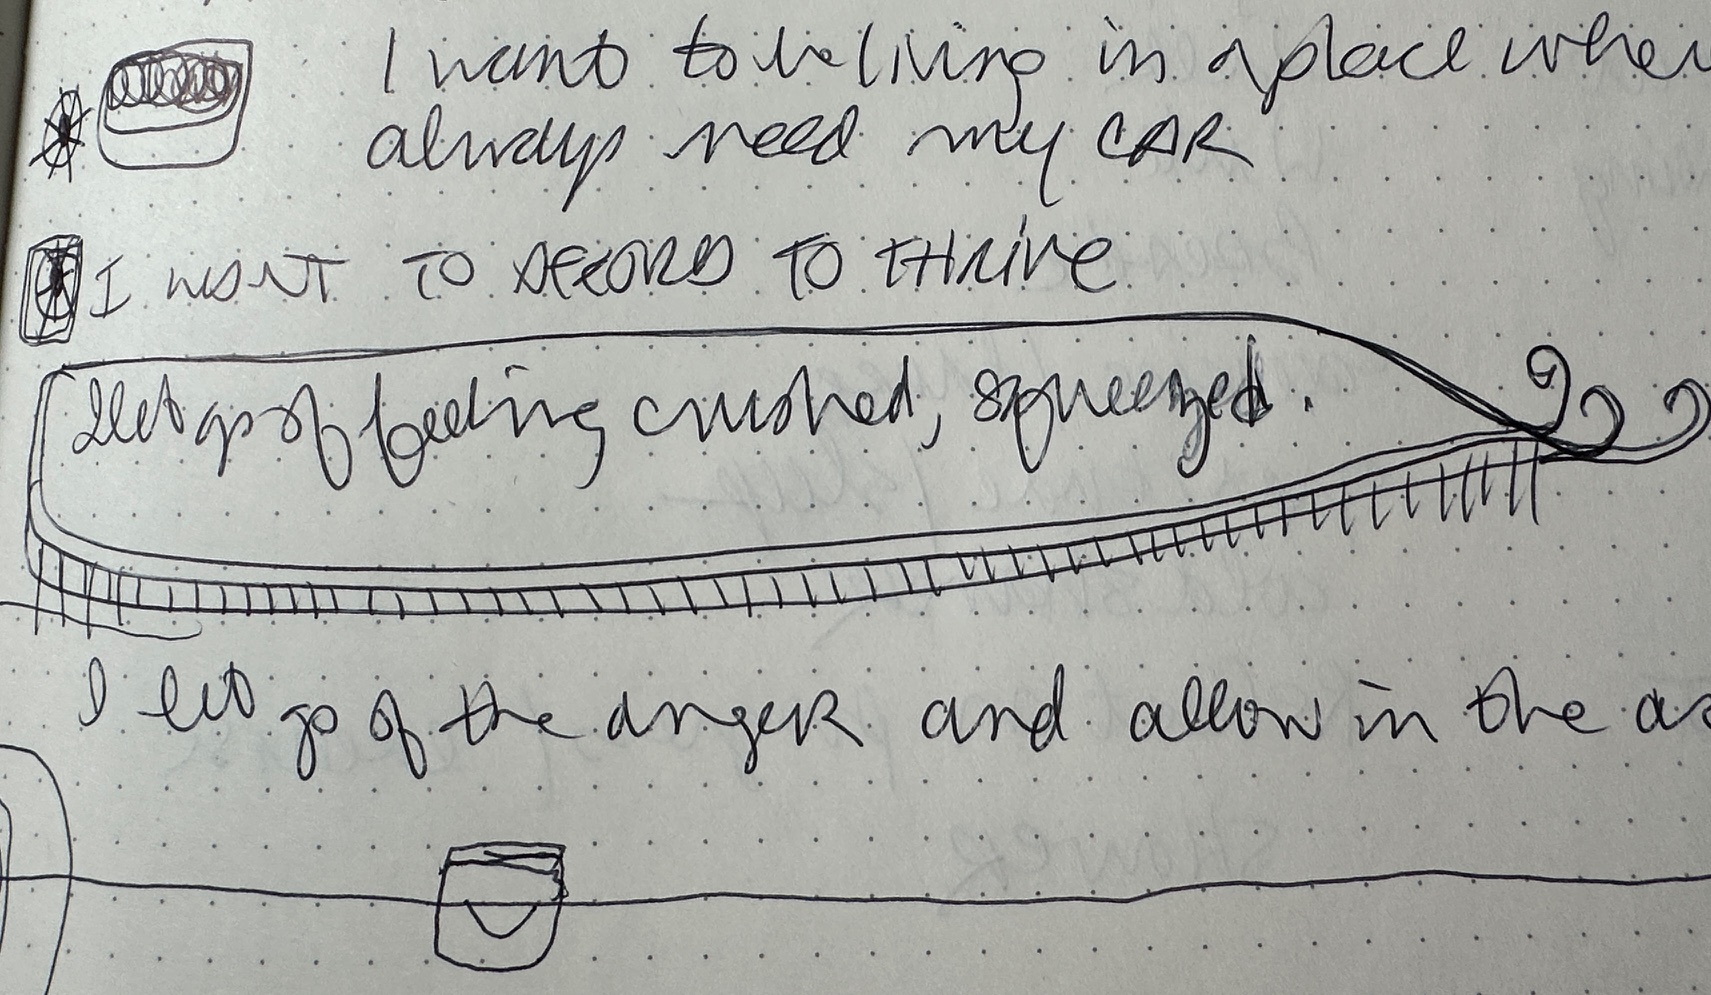 I want to be living in a place where
always need my CAR
I WANT TO AFFORD TO THRIVE
I let go of feeling crushed, squeezed.
I let go of the anger and allow in the